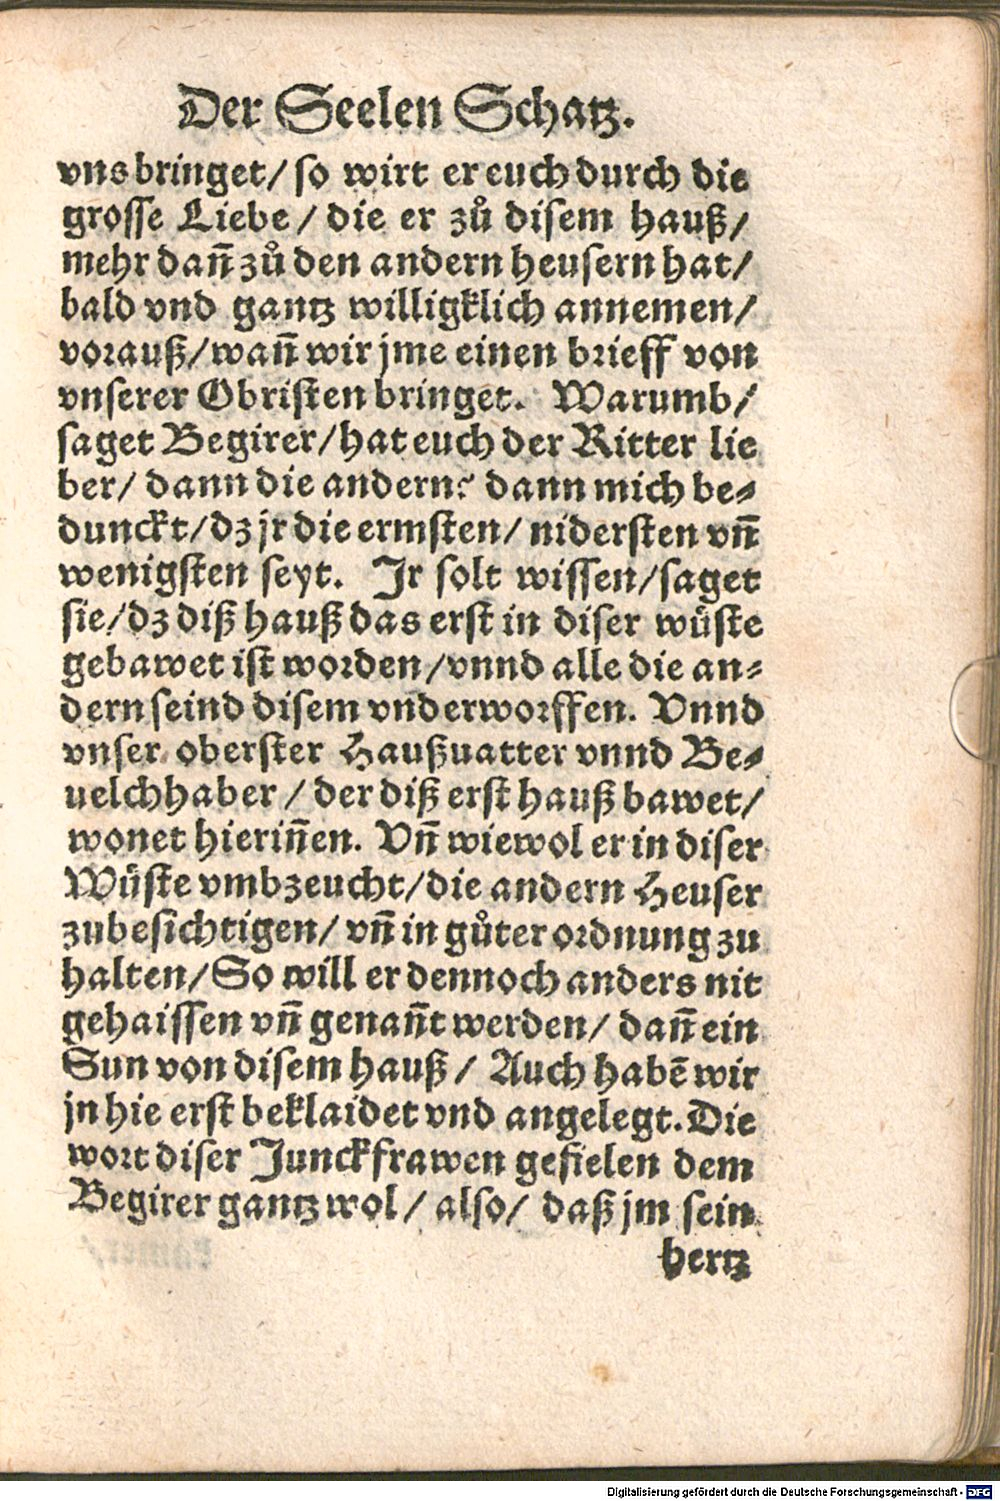 Der Seelen Schatz.
vns bringet/ so wirt er euch durch die
grosse Liebe/ die er zů disem hauß/
mehr dañ zů den andern heusern hat/
bald vnd gantz willigklich annemen/
vorauß/ wañ wir jme einen brieff von
vnserer Obristen bringet. Warumb/
saget Begirer/ hat euch der Ritter lie
ber/ dann die andern? dann mich be⸗
dunckt/ dz jr die ermsten/ nidersten vñ
wenigsten seyt. Ir solt wissen/ saget
sie/ dz diß hauß das erst in diser wüste
gebawet ist worden/ vnnd alle die an⸗
dern seind disem vnderworffen. Vnnd
vnser oberster Haußuatter vnnd Be⸗
uelchhaber/ der diß erst hauß bawet/
wonet hieriñen. Vñ wiewol er in diser
Wüste vmbzeucht/ die andern Heuser
zubesichtigen/ vñ in gůter ordnung zu
halten/ So will er dennoch anders nit
gehaissen vñ genañt werden/ dañ ein
Sun von disem hauß/ Auch habẽ wir
jn hie erst beklaidet vnd angelegt. Die
wort diser Junckfrawen gefielen dem
Begirer gantz wol/ also/ daß jm sein
hertz
Digitalisierung gefördert durch die Deutsche Forschungsgemeinschaft - DFG